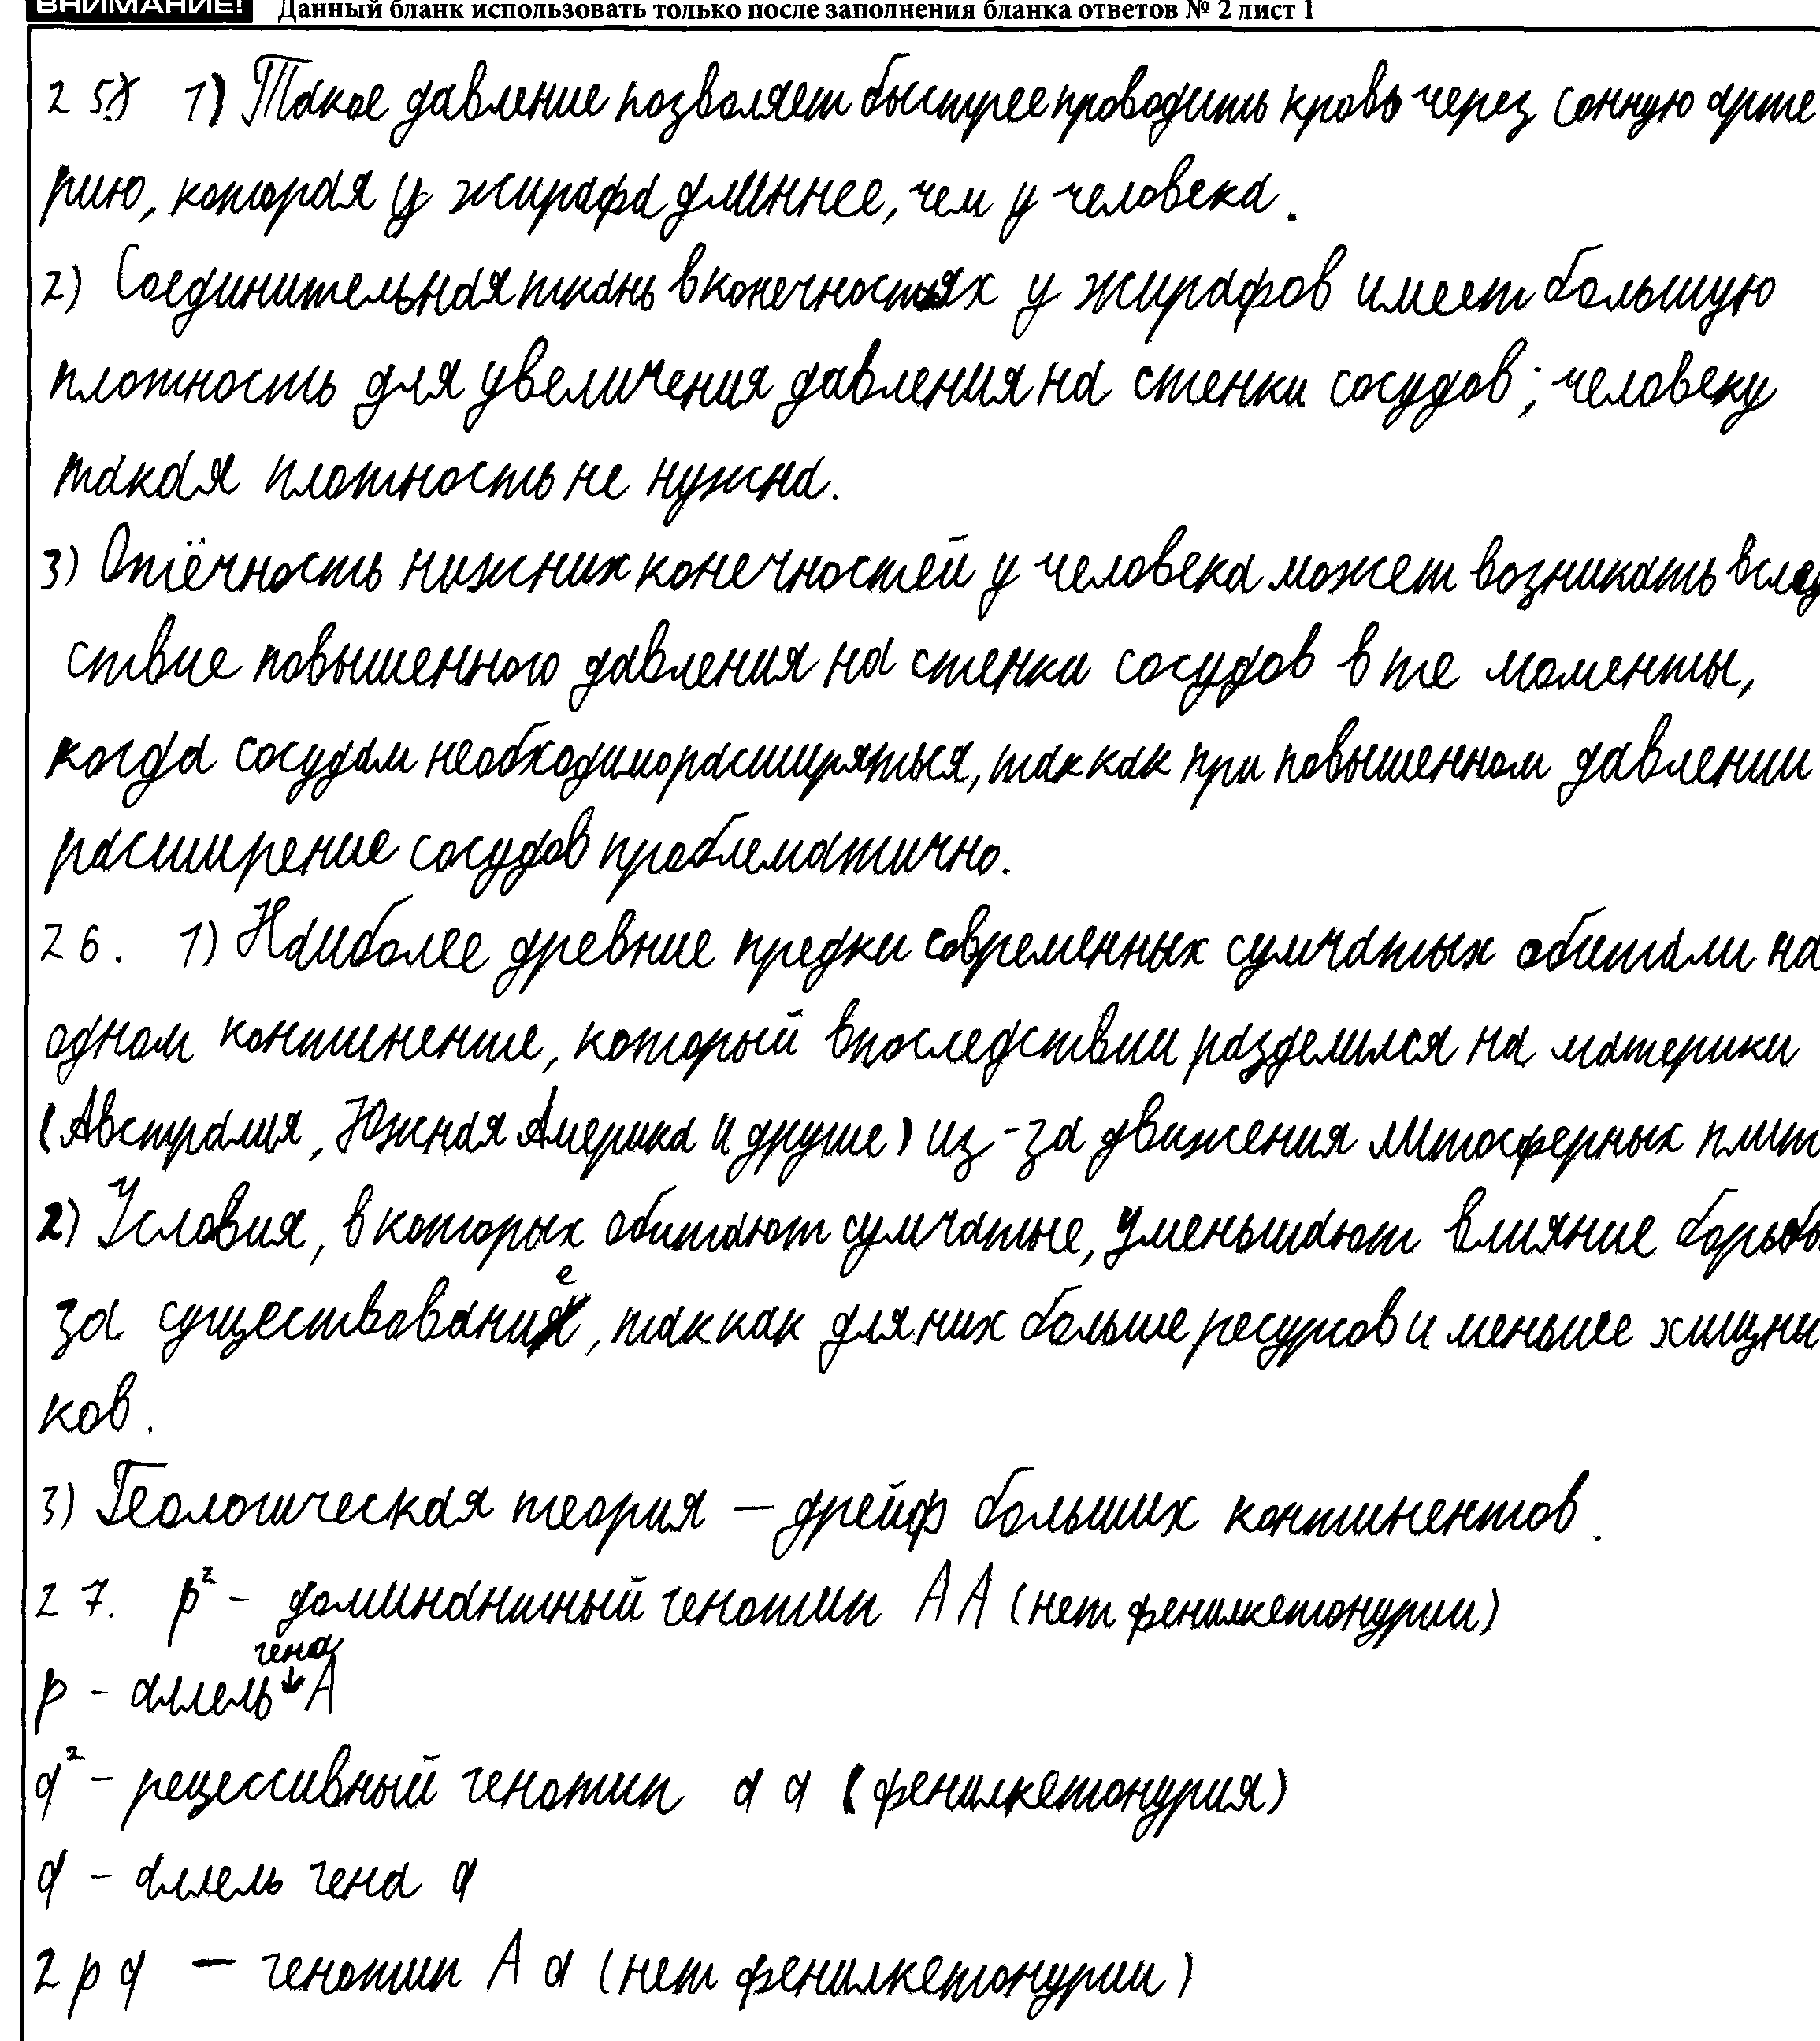 ВНИМАНИЕ! Данный бланк использовать только после заполнения бланка ответов № 2 лист 1
25. 1) Такое давление позволяет быстрее проводить кровь через сонную арте
рию, которая у жирафа длиннее, чем у человека.
2) Соединительная ткань в конечностях у жирафов имеет большую
плотность для увеличения давления на стенки сосудов; человеку
такая плотность не нужна.
3) Отёчность нижних конечностей у человека может возникать вслед
ствие повышенного давления на стенки сосудов в те моменты,
когда сосудам необходимо расширяться, так как при повышенном давлении
расширение сосудов проблематично.
26. 1) Наиболее древние предки современных сумчатых обитали на
одном континенте, который впоследствии разделился на материки
(Австралия, Южная Америка и другие) из-за движения литосферных плит
2) Условия, в которых обитают сумчатые, уменьшают влияние борьбы
за существование, так как для них больше ресурсов и меньше хищни
ков.
3) Геологическая теория — дрейф больших континентов.
27. p² - доминантный генотип AA (нет фенилкетонурии)
p - аллель гена A
q² - рецессивный генотип aa (фенилкетонурия)
q - аллель гена a
2pq — генотип Aa (нет фенилкетонурии)